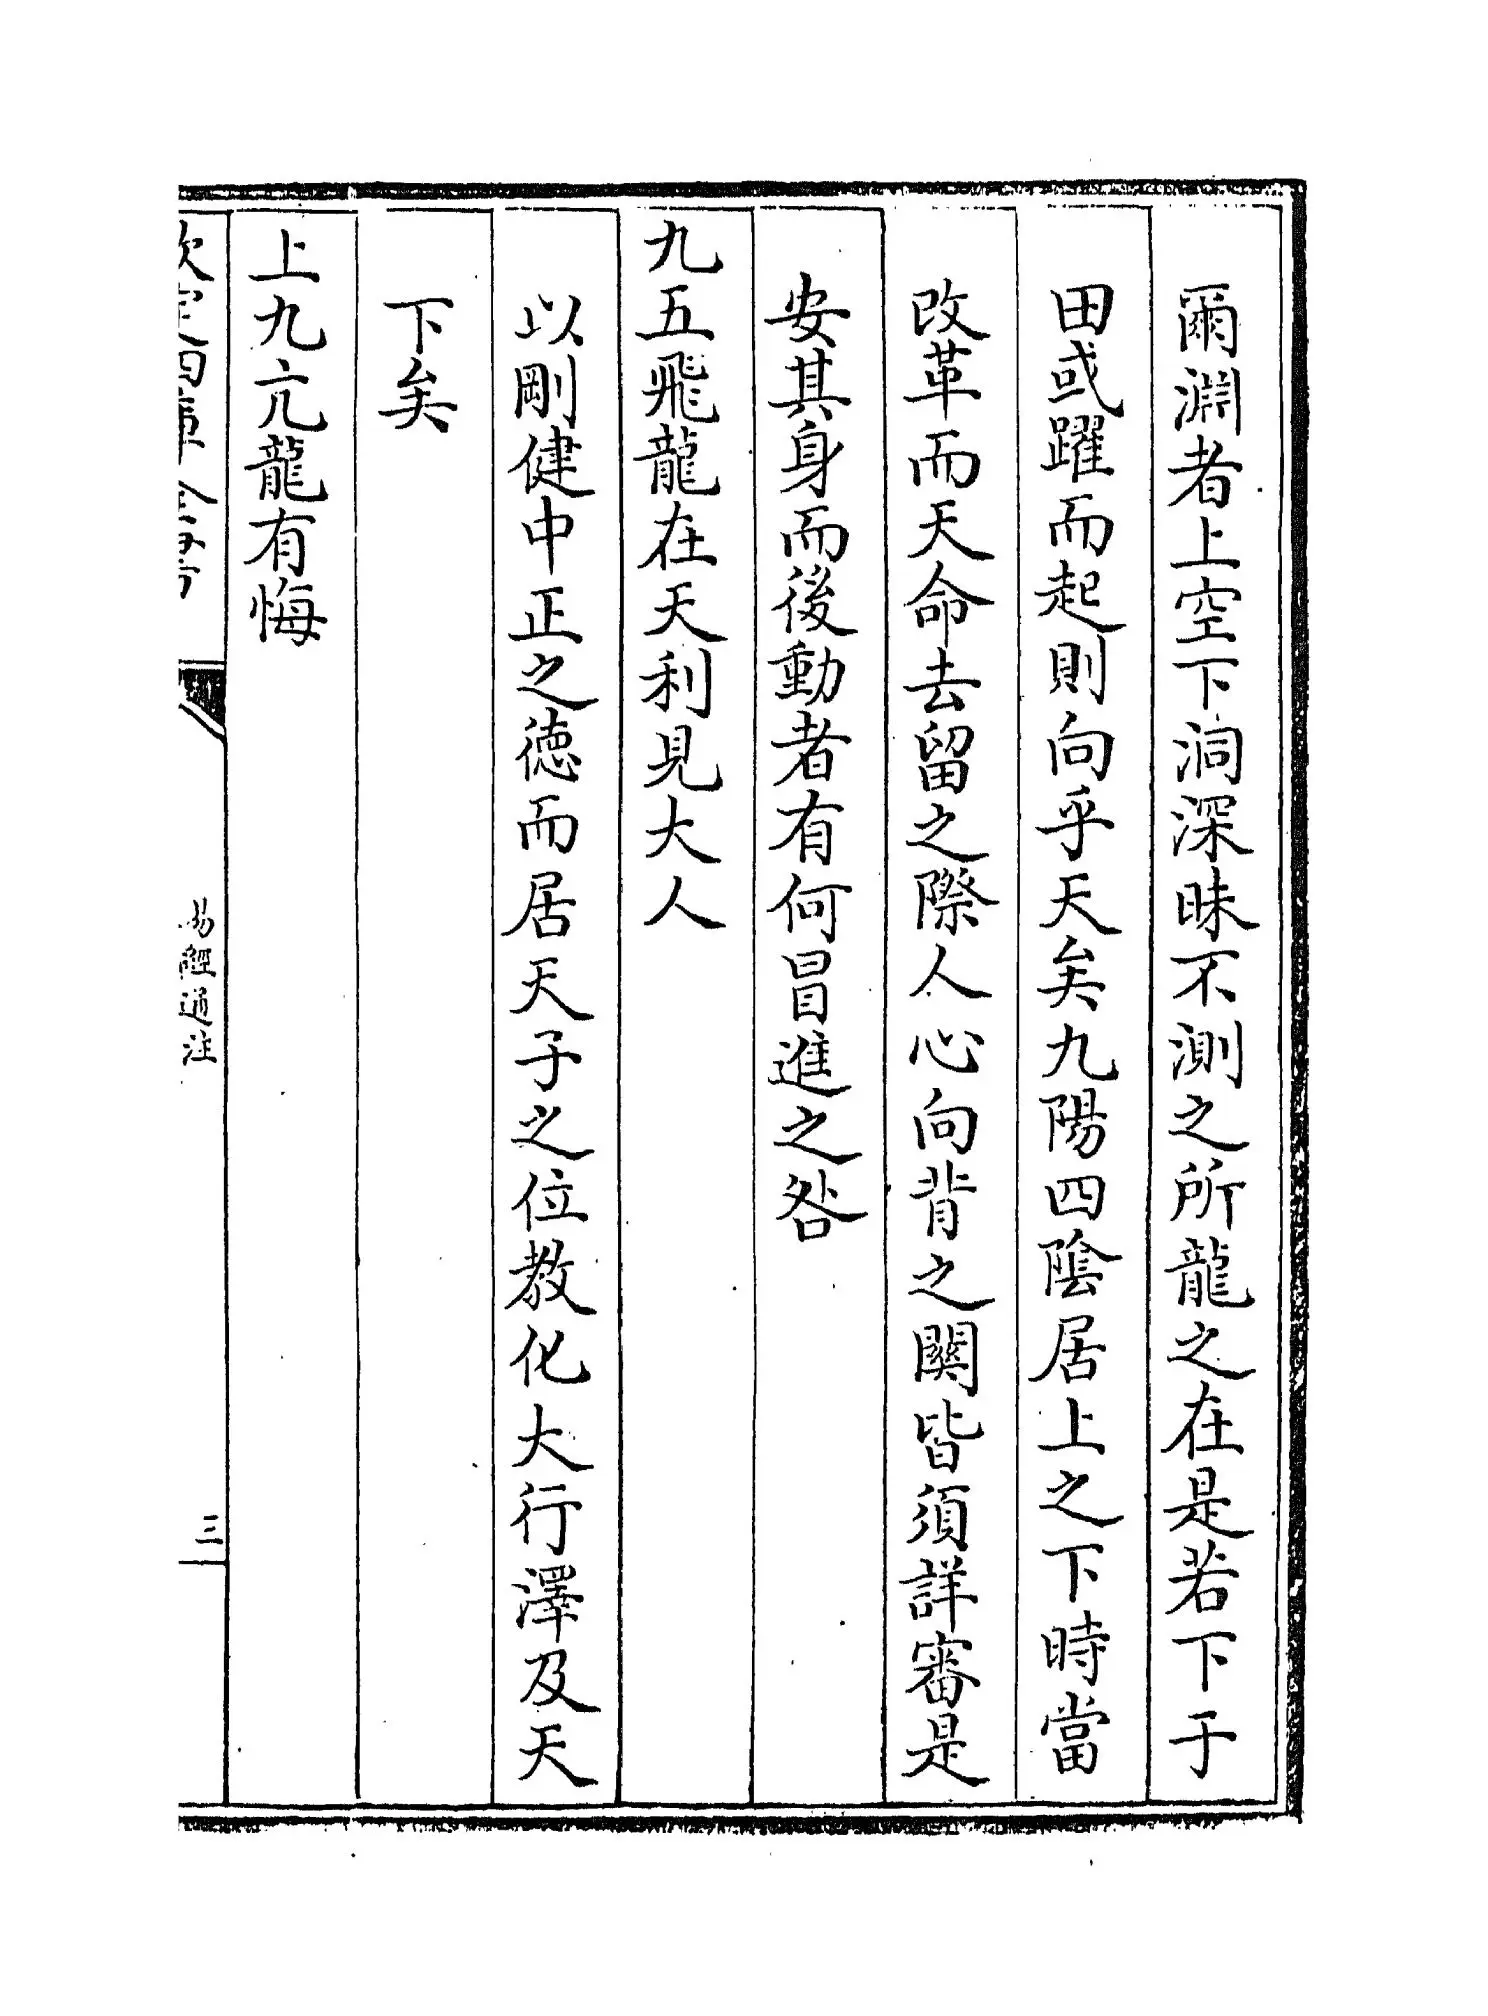 爾淵者上空下洞深昧不測之所龍之在是若下于
田或躍而起則向乎天矣九陽四陰居上之下時當
改革而天命去留之際人心向背之關皆須詳審是
安其身而後動者有何冒進之咎
九五飛龍在天利見大人
以剛健中正之德而居天子之位教化大行澤及天
下矣
上九亢龍有悔
欽定四庫全書
易經通注
三